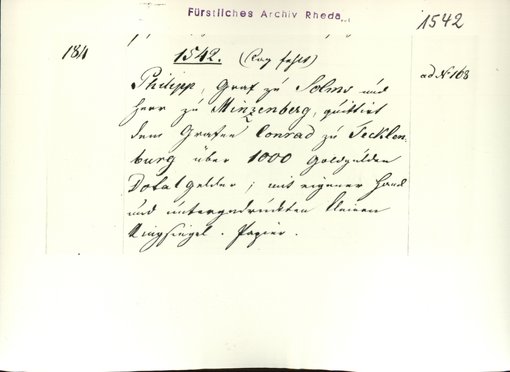 Fürstliches Archiv Rheda
1542
184
1542. (Tag fehlt)
ad № 168
Philipp, Graf zu Solms und
Herr zu Minzenberg, quittirt
dem Grafen Conrad zu Tecklen
burg über 1000 Goldgulden
Dotalgelder; mit eigener Hand
und untergedrückten kleinen
Ringsiegel. Papier.